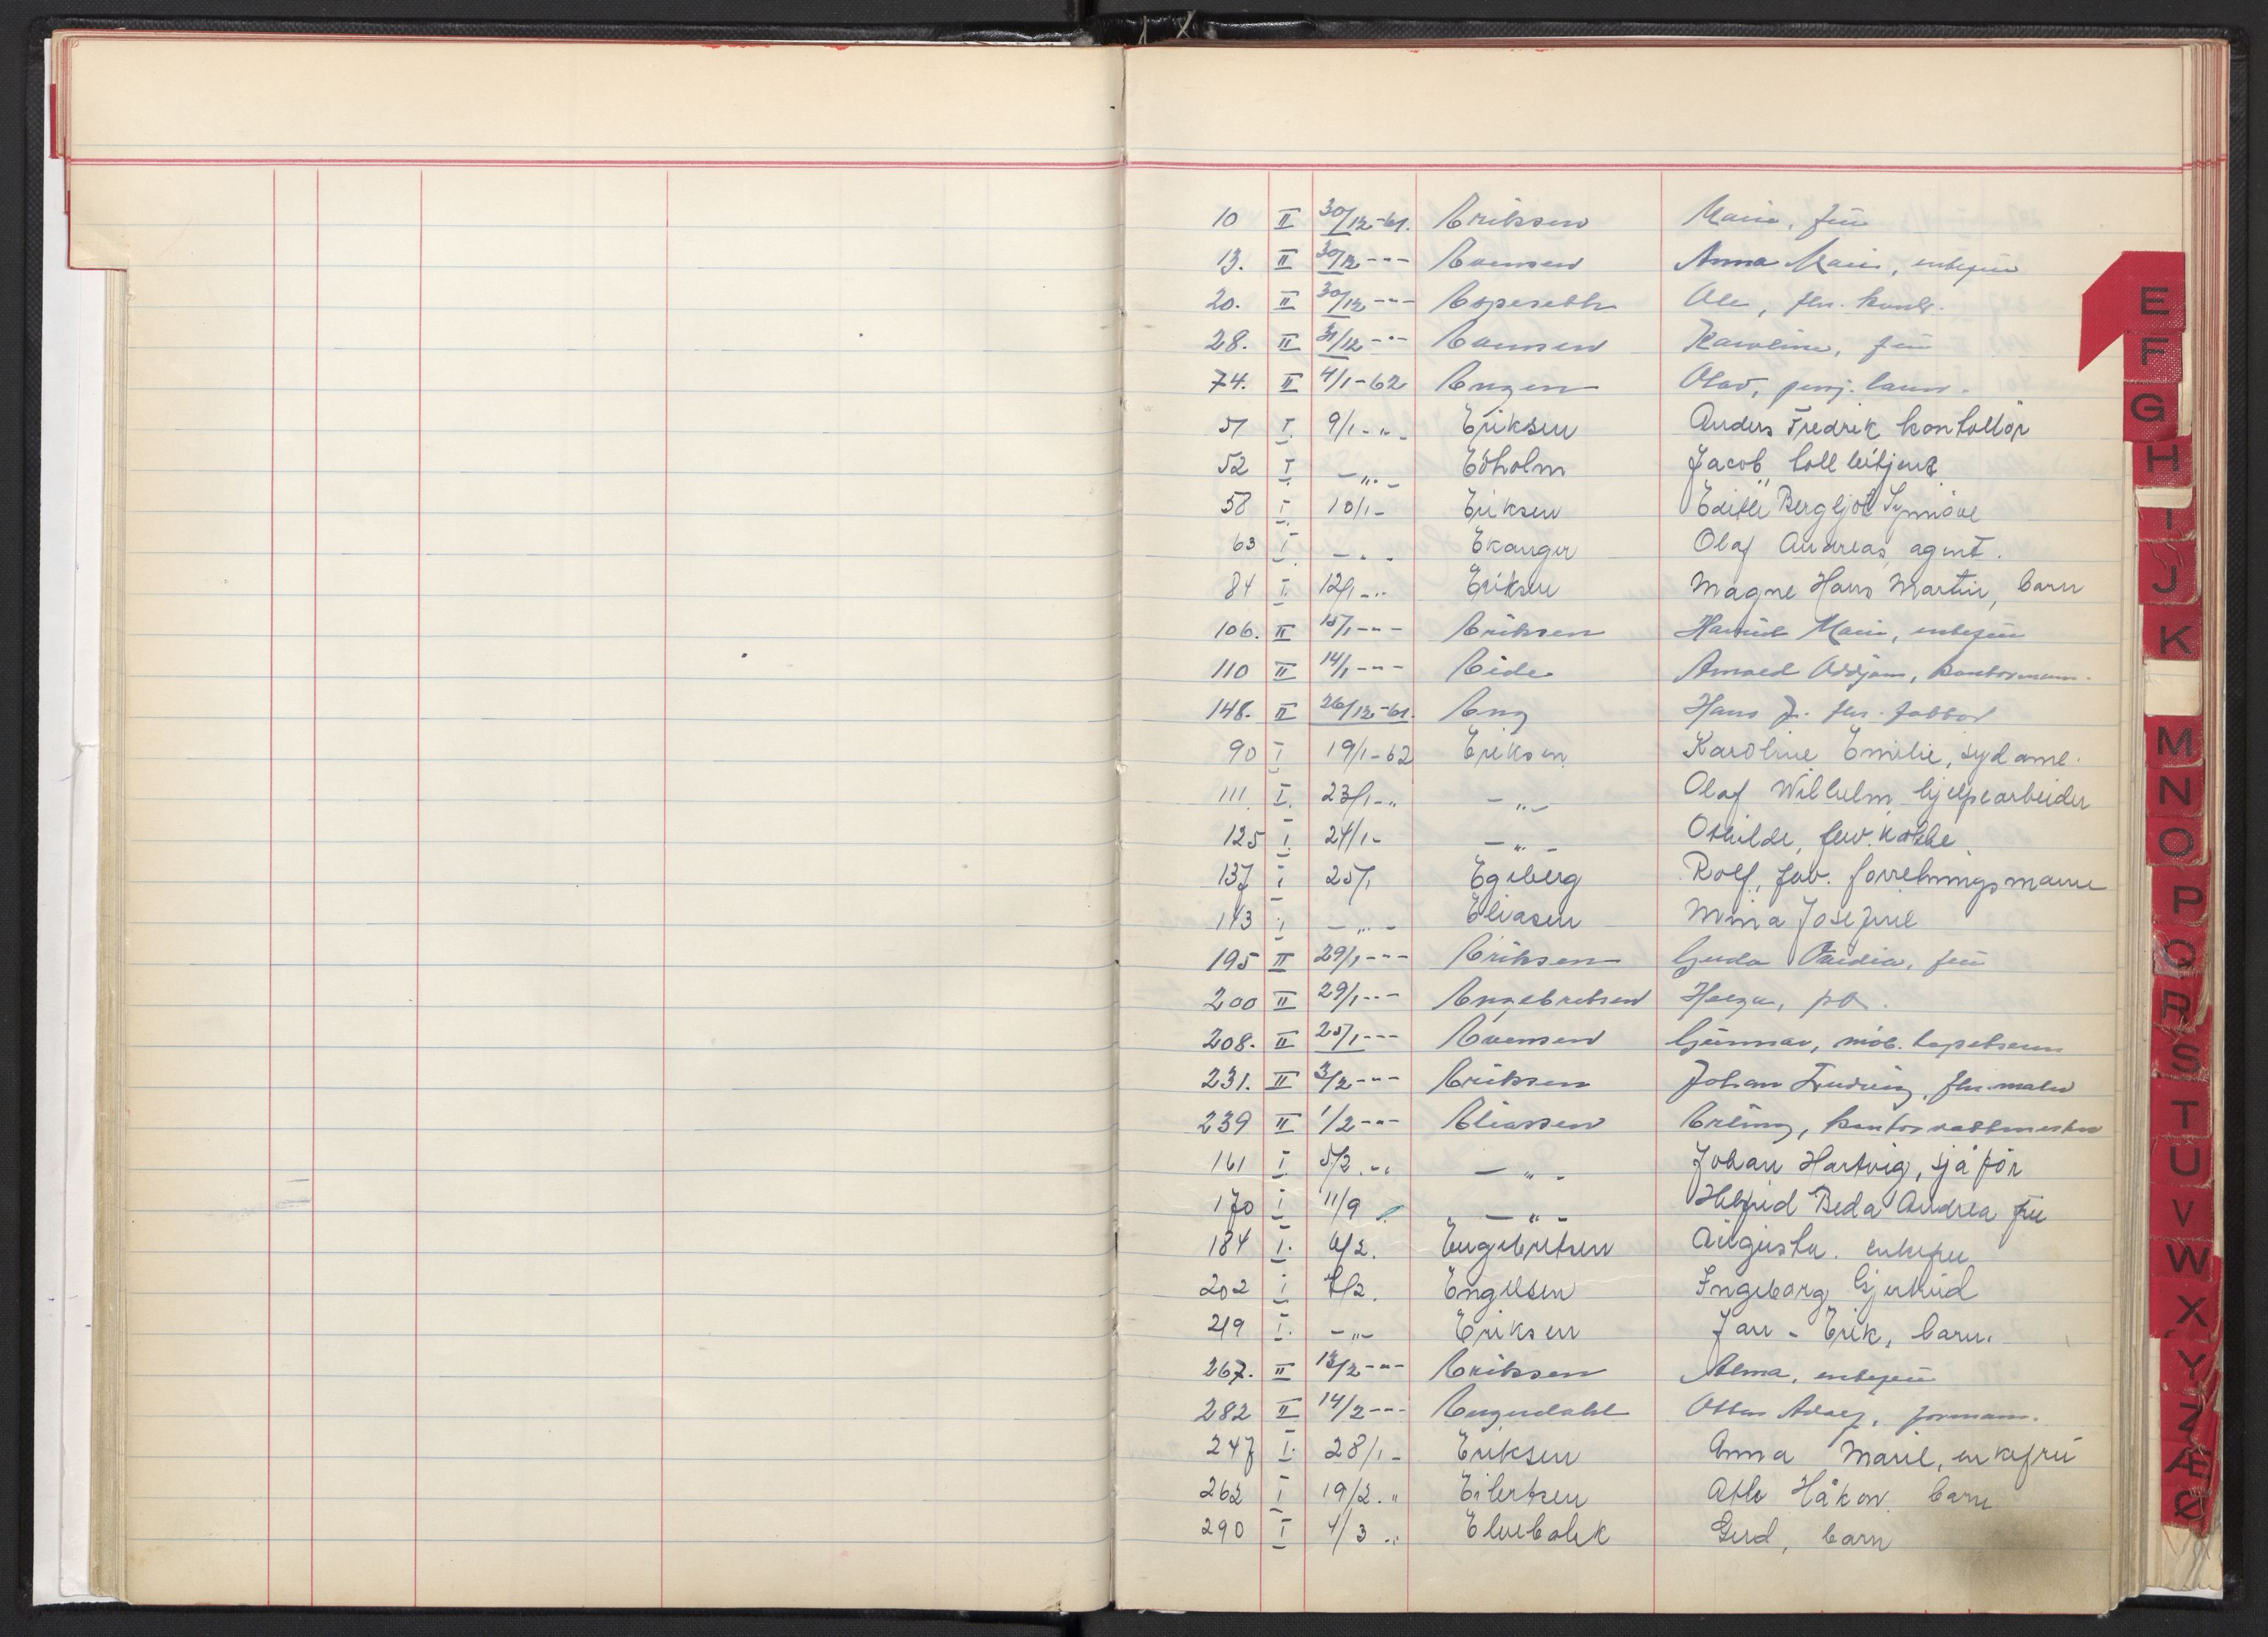 10 II 30/12-61. Eriksen Marie, frú
13. II 30/12 -"- Evensen Anna Marie, enkefrú
20. II 30/12 -"- Espeseth Ole, fhv.
28. II 31/12 -"- Evensen Karoline, frú
74. II 4/1-62 Engen Olav, pensj.
51 I. 9/1-"- Eriksen Anders Fredrik kontrollör
52 I. -"- Edholm Jacob toll
58 I. 10/1- Eriksen Edith Bergljot Synnöve
63 I. -"- Ekanger Olaf Andreas, agent.
84 I. 12/1-"- Eriksen Magne Hans Martin, barn
106. II 15/1-"- Eriksen Marie, enkefrú
110 II 14/1-"- Eide Arnold Oddjam, kontormann.
148. II 26/12-61. Eng Hans J. fhv.
90 I 19/1-62 Eriksen Karoline Emilie, syd ame.
111. I. 23/1-" -"- Olaf Wilhelm hjelpearbeider
125 I. 24/1- -"- Othilde, fhv. kokke.
137 I 25/1 Egeberg Rolf, fhv. forretningsmann
143 I -"- Eliasen Mina Josefine
195 II 29/1-"- Eriksen Gerda frú
200 II 29/1-"- Engebretsen Helga,
208. II 25/1-"- Evensen Gúnnar, möb. tapetserer
231. II 3/2-"- Eriksen Johan fhv. maler
239 II 1/2-"- Eliassen Erling, kontorvaktmester
161 I. 5/2.-" -"- Johan Hartvig, sjåför
170 I 11/9 -"- Beda Andrea frú
184 I. 6/2. Engebretsen Aúgusta. enkefrú
202 I 7/2. Engelsen Ingeborg Gjertrúd
219 I. -"- Eriksen Jan - Erik, barn.
267. II 13/2-"- Eriksen Alma, enkefrú
282 II 14/2-"- Engendahl Adolf, formann.
247 I. 28/1- Eriksen Anna Marie, enkefrú
262 I 19/2." Eilertsen Atle Håkon barn
290 I 4/3 ." Elvebakk Gerd, barn
E
F
G
H
I
J
K
M
N
O
P
Q
R
S
T
U
V
W
X
Y
Z
Æ
Ø